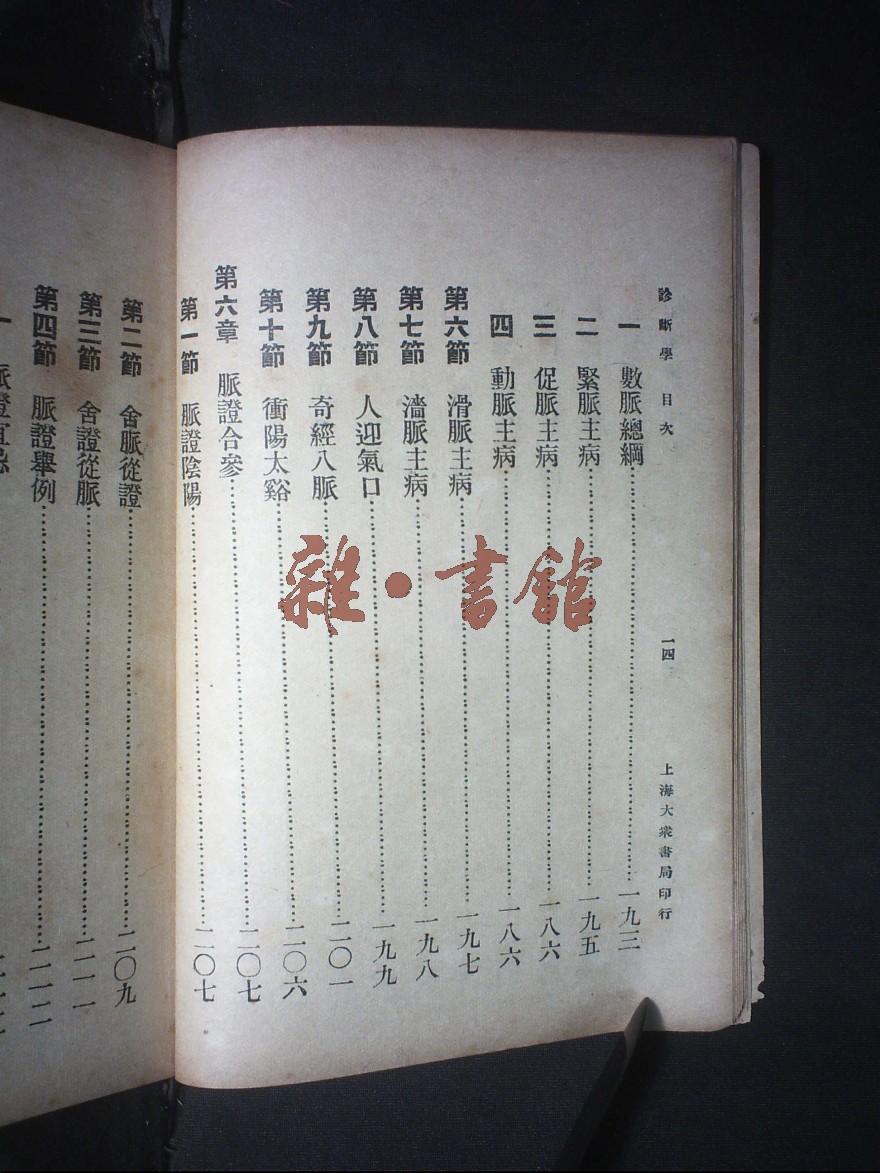 診斷學 目次 一四 上海大衆書局印行
一 數脈總綱……一九三
二 緊脈主病……一九五
三 促脈主病……一八六
四 動脈主病……一八六
第六節 滑脈主病……一九七
第七節 濇脈主病……一九八
第八節 人迎氣口……一九九
第九節 奇經八脈……二〇一
第十節 衝陽太谿……二〇六
第六章 脈證合參……二〇七
第一節 脈證陰陽……二〇七
第二節 舍脈從證……二〇九
第三節 舍證從脈……二一一
第四節 脈證舉例……二一二
一 脈證宜忌
雜·書館